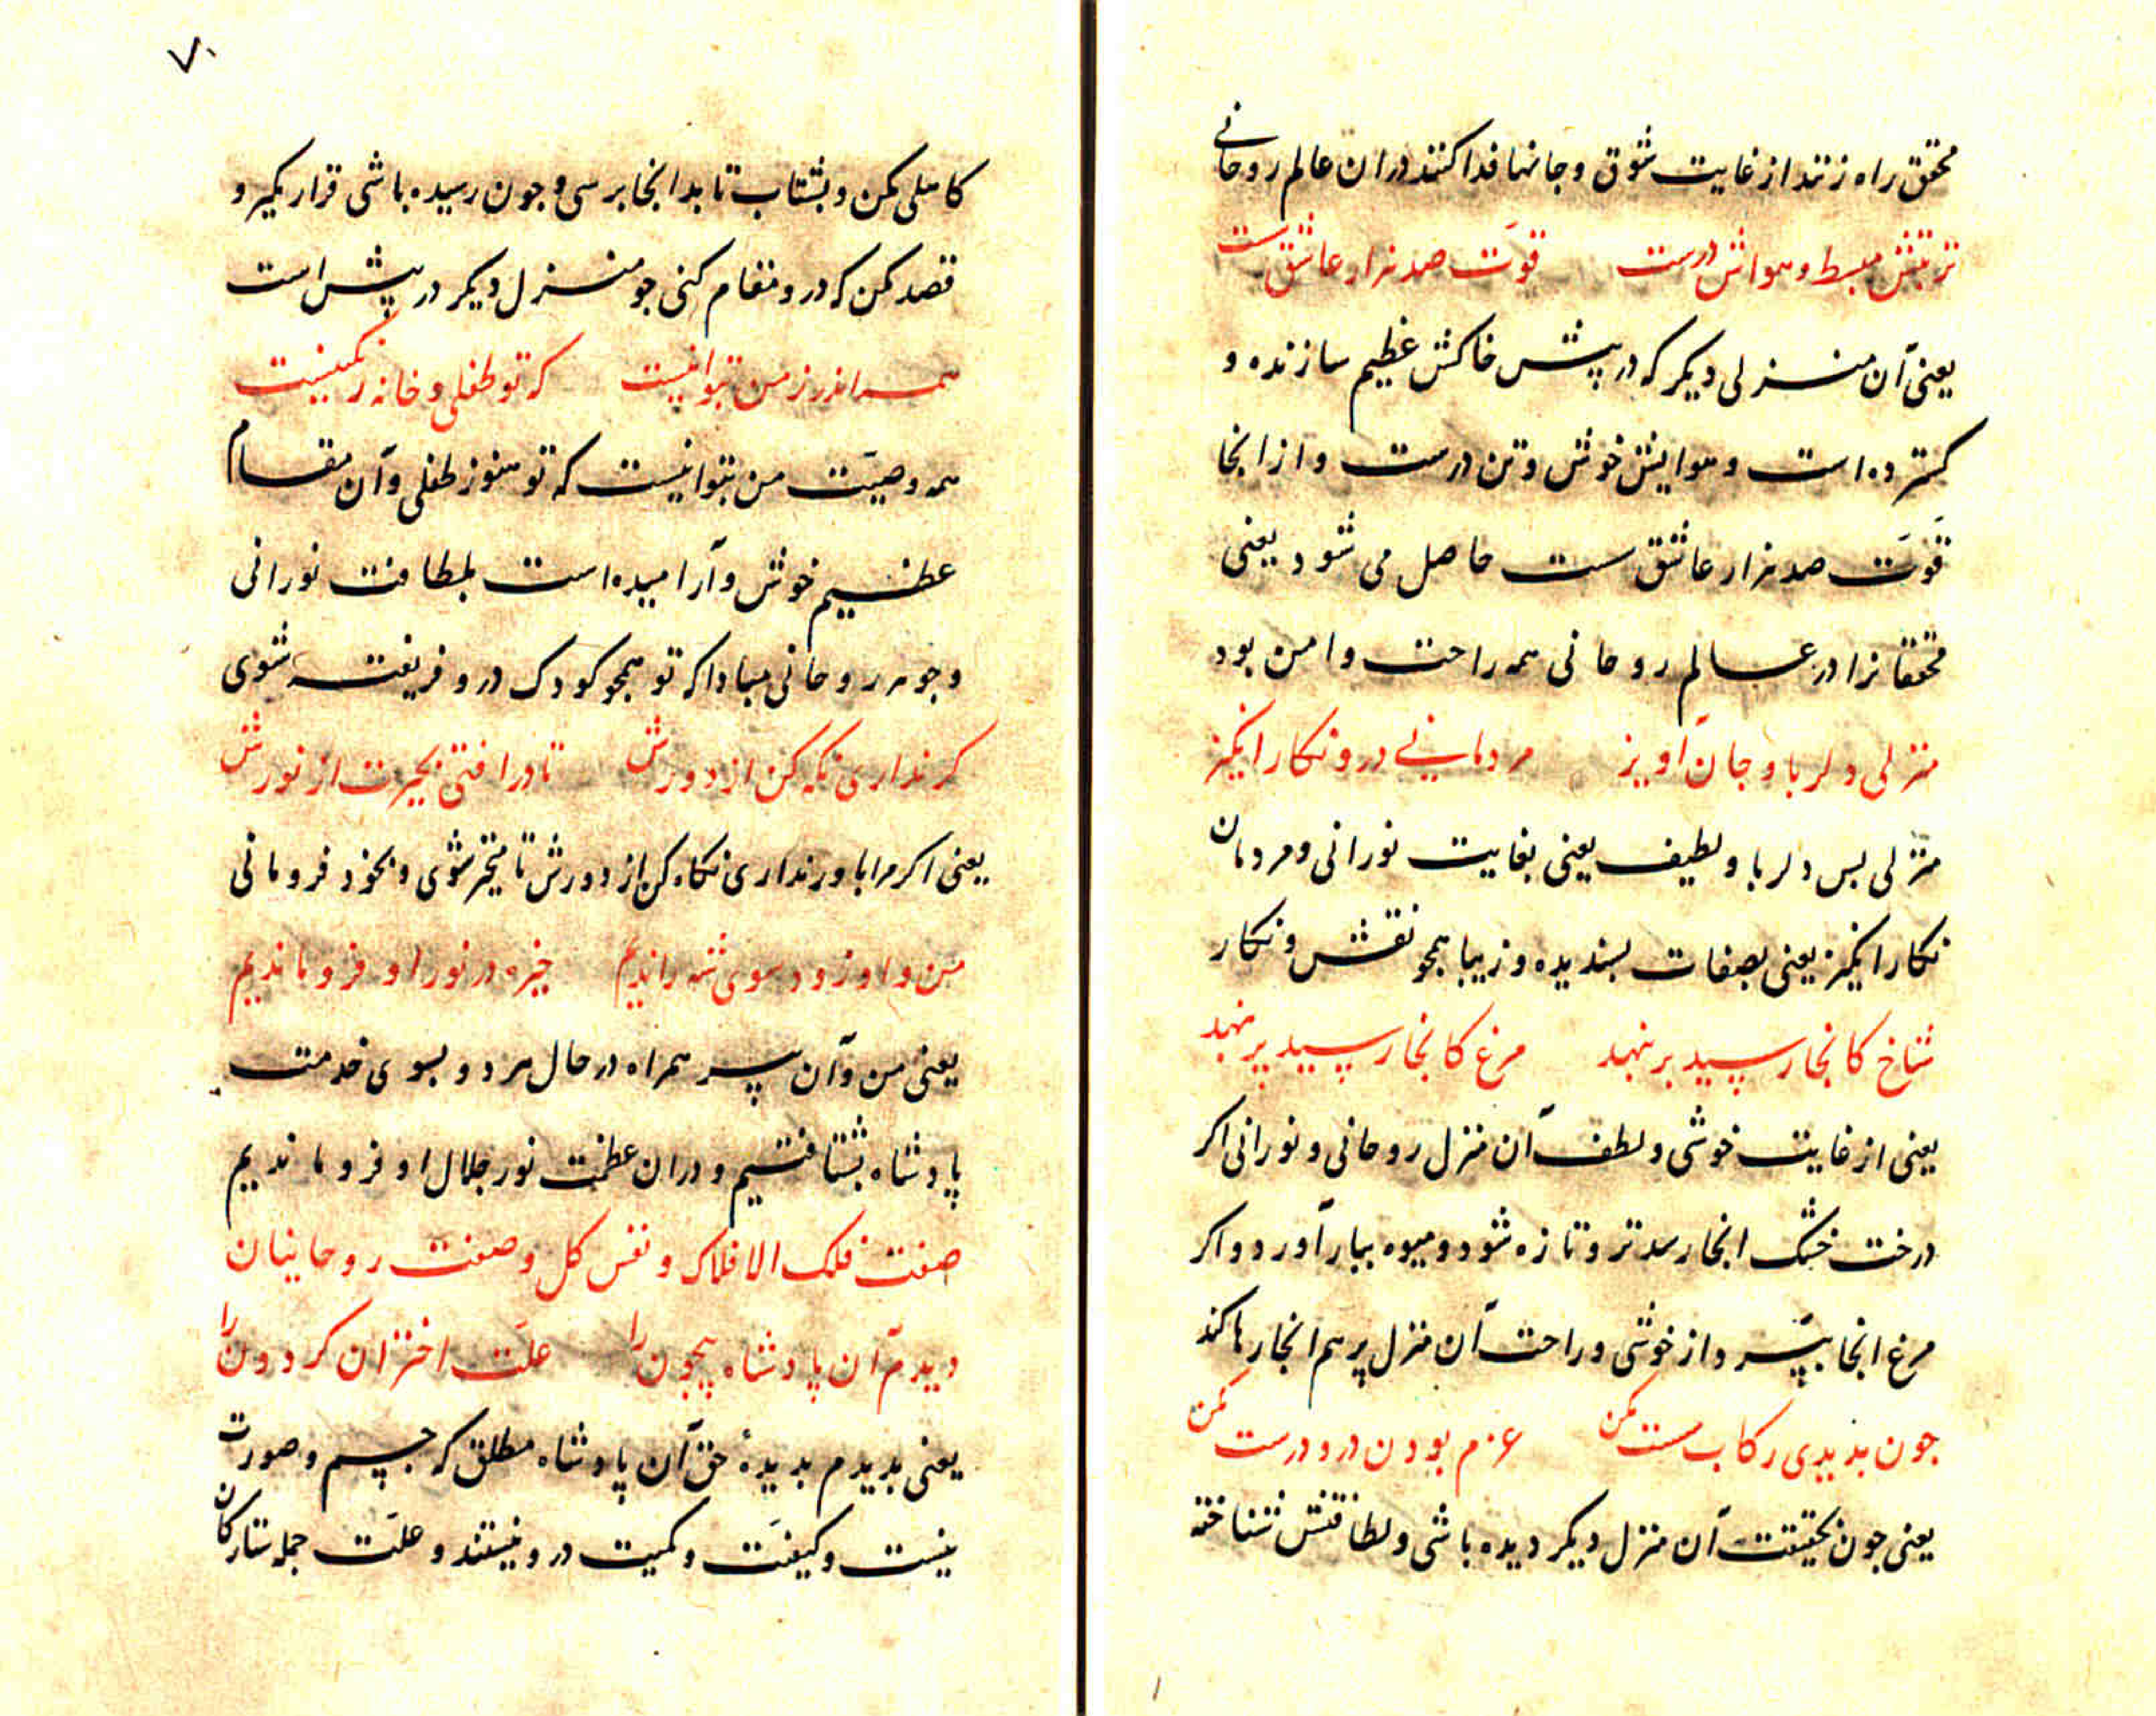 محقق راه زنند از غایت شوق و جانها فدا کنند در ان عالم روحانی
تربتش مبسط و هواش درست قوّت صد هزار عاشق ست
یعنی آن منزلی دیکر که در پیش خاکش عظیم سازنده و
کسترده است و هوایش خوش و تن درست و از انجا
قوّت صد هزار عاشق ست حاصل می شود یعنی
محققانرا در عالم روحانی همه راحت و امن بود
منزلی دلربا و جان آویز مردمانی درو نکار انکیز
منزلی بس دلربا و لطیف یعنی بغایت نورانی و مردمان
نکار انکیز یعنی بصفات پسندیده و زیبا همجو نقش و نکار
شاخ کانجا رسید بر بنهد مرغ کانجا رسید پر بنهد
یعنی از غایت خوشی و لطف آن منزل روحانی و نورانی اکر
درخت خشک انجا رسد تر و تازه شود و میوه ببار آورد و اکر
مرغ انجا بپّرد از خوشی و راحت آن منزل پر هم انجا رها کند
جون بدیدی رکاب سست مکن عزم بودن درو درست مکن
یعنی جون بحقیقت آن منزل دیکر دیده باشی و لطافتش شناخته
۷۰
کاهلی مکن و بشتاب تا بدانجا برسی و جون رسیده باشی قرار مکیر و
قصد مکن که درو مقام کنی جو منزل دیکر در پیش است
همه اندرز من بتو اینست که تو طفلی و خانه رنکینست
همه وصیّت من بتو اینست که تو هنوز طفلی و آن مقام
عظیم خوش و آرامیده است بلطافت نورانی
و جوهر روحانی مبادا که تو همجو کودک درو فریفته شوی
کر نداری نکه کن از دورش تا در افتی بحیرت از نورش
یعنی اکر مرا باور نداری نکاه کن از دورش تا متحیّر شوی و بخود فرو مانی
من و او زود سوی شه راندیم خیره در نور او فرو ماندیم
یعنی من و آن پیر همراه در حال هر دو بسوی خدمت
پادشاه بشتافتیم و در ان عظمت نور جلال او فرو ماندیم
صفت فلک الافلاک و نفس کل و صفت روحانیان
دیدم آن پادشاه بیجون را علّت اختران کردون را
یعنی بدیدم بدیدهٔ حق آن پادشاه مطلق که جسم و صورت
نیست و کیفیّت و کمیت درو نیستند و علّت جمله ستارکان